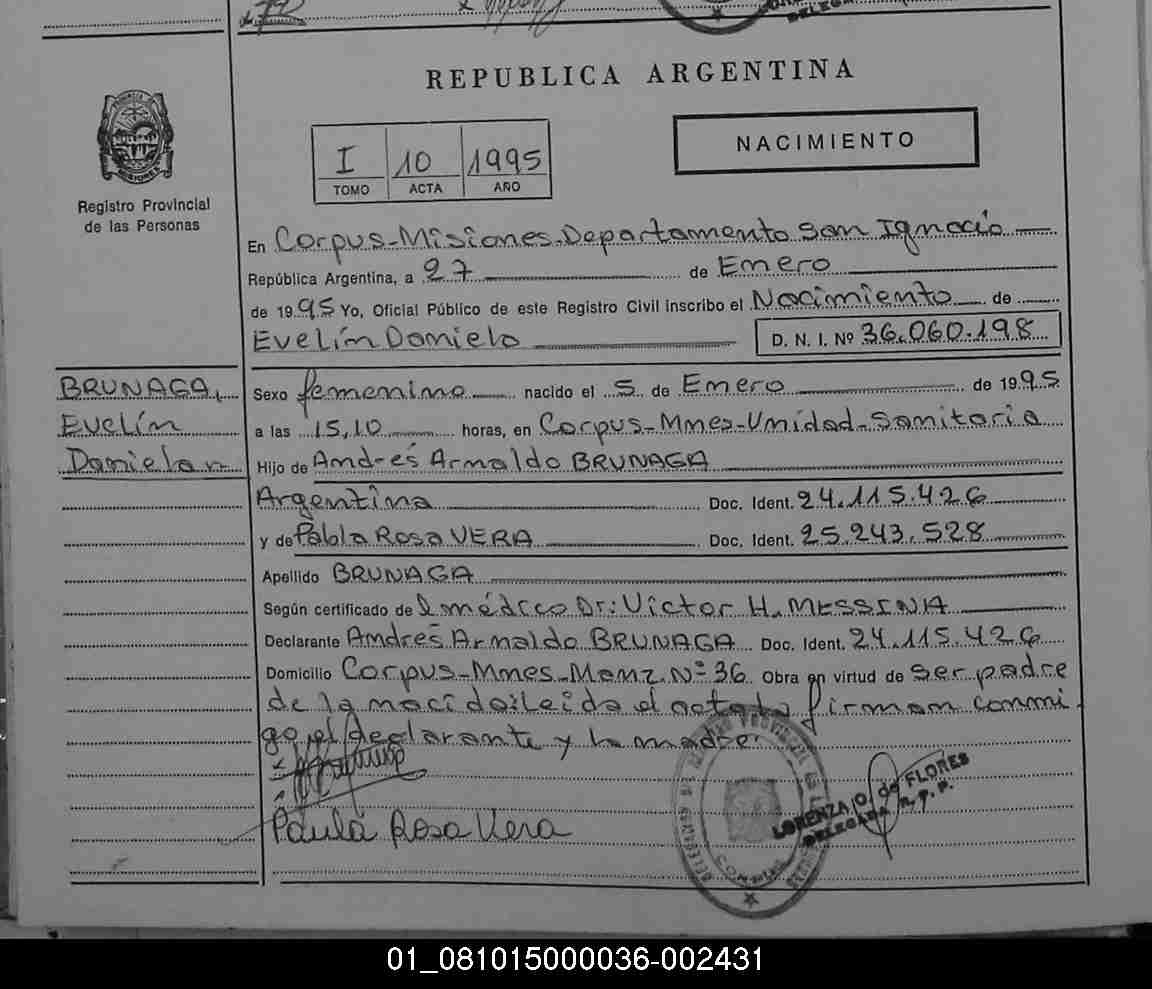 REPUBLICA ARGENTINA
NACIMIENTO
I 10 1995
TOMO ACTA AÑO
Registro Provincial
de las Personas
En Corpus-Misiones-Departamento San Ignacio
República Argentina, a 27 de Enero
de 1995 Yo, Oficial Público de este Registro Civil inscribo el Nacimiento de
Evelín Daniela D. N. I. Nº 36.060.198
BRUNAGA,
Evelín
Daniela
Sexo femenino nacido el 5 de Enero de 1995
a las 15,10 horas, en Corpus-Mnes-Unidad-Sanitaria
Hijo de Andrés Arnaldo BRUNAGA
Argentina Doc. Ident. 24.115.426
y de Pabla Rosa VERA Doc. Ident. 25.243.528
Apellido BRUNAGA
Según certificado del médico Dr: Víctor H. MESSINA
Declarante Andrés Arnaldo BRUNAGA Doc. Ident. 24.115.426
Domicilio Corpus-Mnes-Manz. Nº 36 Obra en virtud de ser padre
de la nacida: Leída el acta la firman conmi
go, el declarante y la madre
Paula Rosa Vera
LORENZA O. de FLORES
DELEGADA R. P. P.
01_081015000036-002431